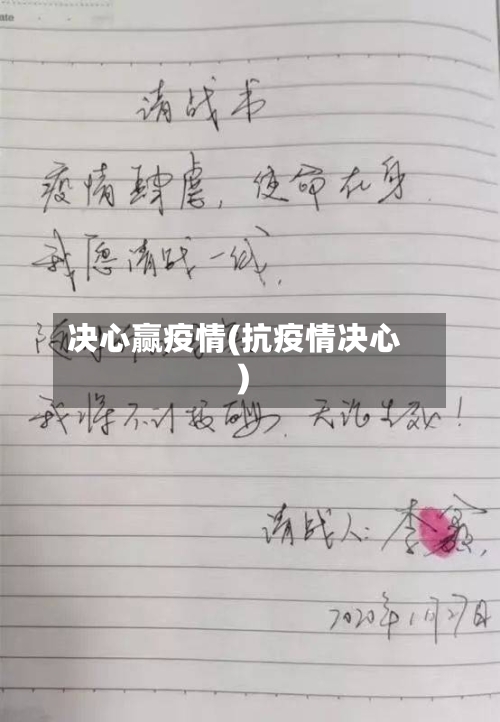 ate
请战书
疫情肆虐,使命在身.
我愿请战一线,
随
决心赢疫情(抗疫情决心
)
我将不计报酬、无论生死!
请战人:李鑫
2020年1月27日